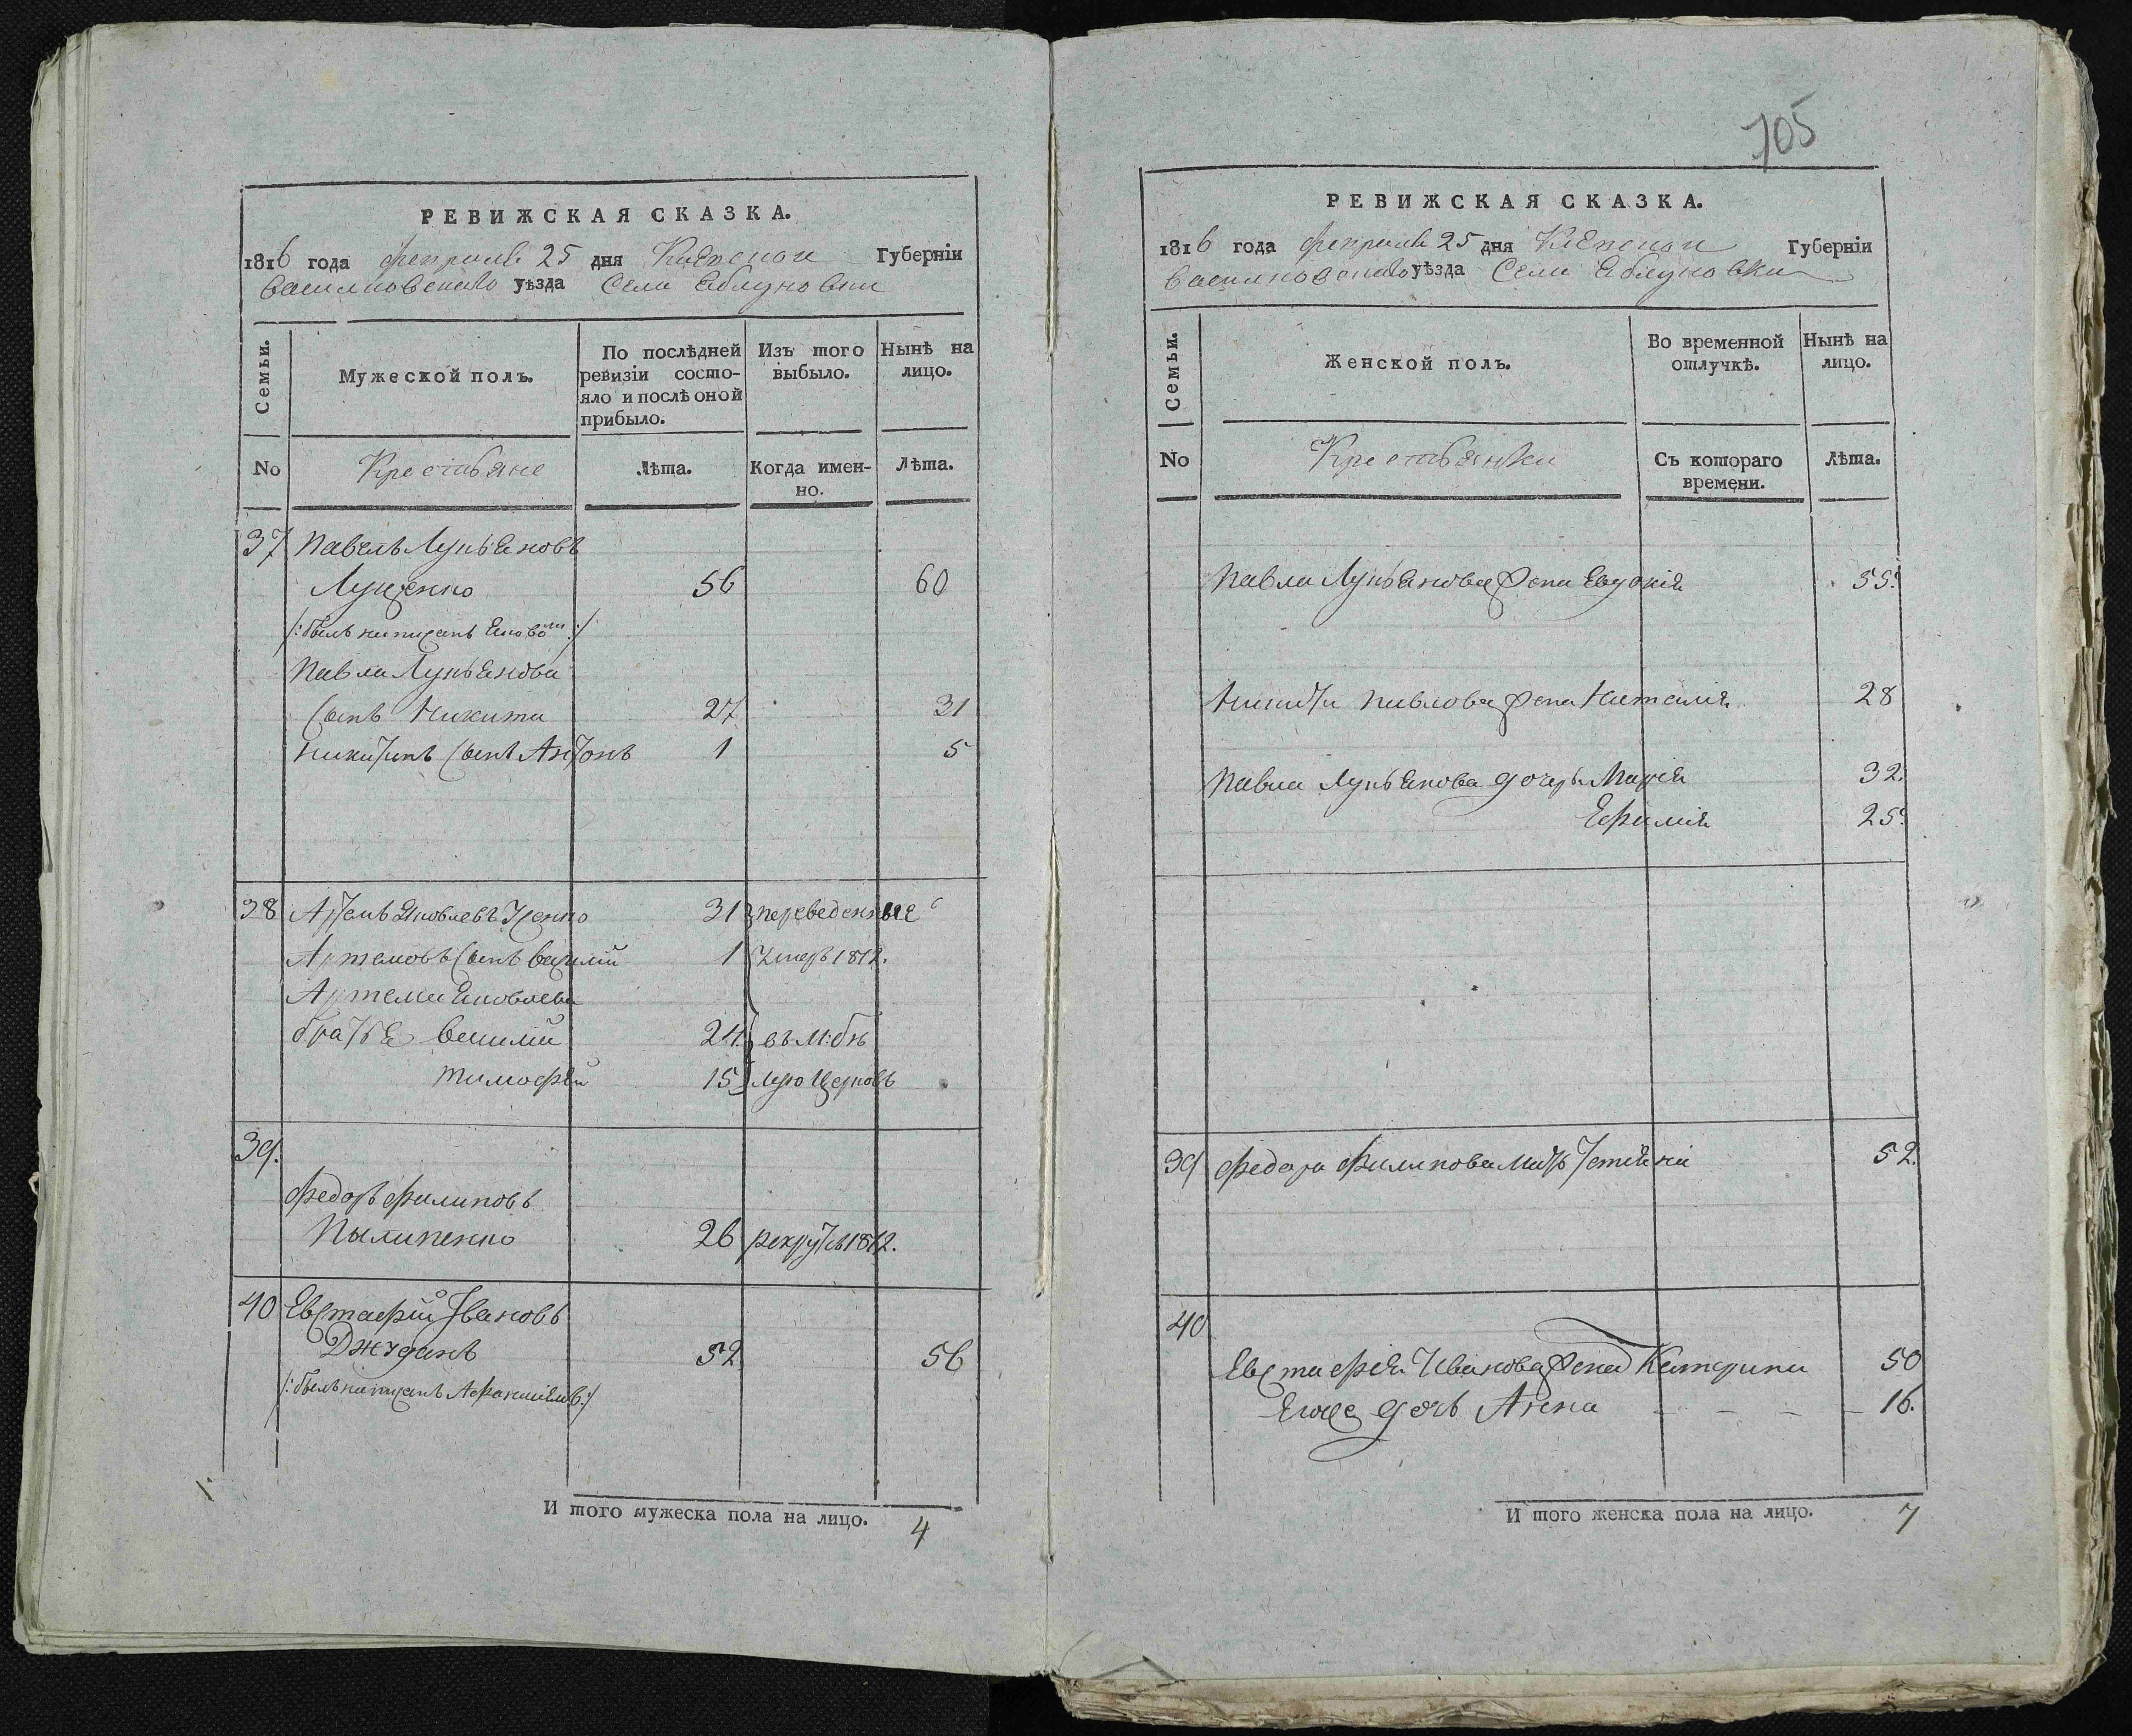 РЕВИЖСКАЯ СКАЗКА.
1816 года февраля 25 дня Киевской Губерніи
Васильковскаго уѣзда Села Яблуновки
Семьи.
Мужеской полъ.
По послѣдней ревизіи состояло и послѣ оной прибыло.
Изъ того выбыло.
Нынѣ на лицо.
No
Крестьяне
Лѣта.
Когда именно.
Лѣта.
37 Павелъ Лукьяновъ
Луценко 56 60
/: былъ написанъ :/
Павла Лукьянова
Сынъ Никита 27 31
Никитинъ Сынъ Антонъ 1 5
38 Артемъ Яковлевъ 31 переведенные
Артемовъ Сынъ Василій 1 1812.
Артема Яковлева
братья Василий 24. въ М: бѣ
Тимофей 15 лую Церковь
39.
Федоръ Филиповъ
Пылипенко 26 рекрутъ 1812.
40 Евстафій Ивановъ
Джуданъ 52 56
/: былъ написанъ :/
И того мужеска пола на лицо. 4
105
РЕВИЖСКАЯ СКАЗКА.
1816 года февраля 25 дня Киевской Губерніи
Васильковскаго уѣзда Села Яблуновки
Семьи.
Женской полъ.
Во временной отлучкѣ.
Нынѣ на лицо.
No
Крестьянки
Съ котораго времени.
Лѣта.
Павла Лукьянова жена Евдокія 55.
Никиты Павлова жена Наталія 28
Павла Лукьянова дочери Марія 32.
Ефимія 25.
39 Федора Филипова мать Устиянa 52.
40
Евстафія Иванова жена Катерина 50
Ихже дочь Анна - - - - 16.
И того женска пола на лицо. 7